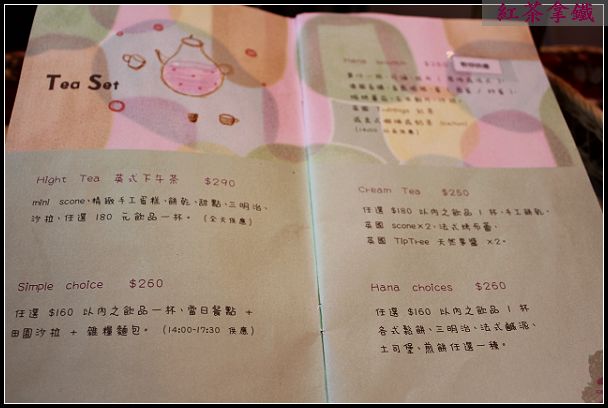 紅茶拿鐵
Tea Set
Hight Tea 英式下午茶 $290
mini scone、精緻手工蛋糕、餅乾、甜點、三明治、
沙拉, 任選 180 元飲品一杯。(全天供應)
Simple choice $260
任選 $160 以內之飲品一杯、當日餐點 +
田園沙拉 + 雜糧麵包。(14:00-17:30 供應)
Hana
Cream Tea $250
任選 $180 以內之飲品 1 杯、手工餅乾、
英國 scone×2、法式烤布蕾、
英國 TipTree 天然果醬 ×2。
Hana choices $260
任選 $160 以內之飲品 1 杯
各式鬆餅、三明治、法式鹹派、
土司堡、煎餅任選一種。